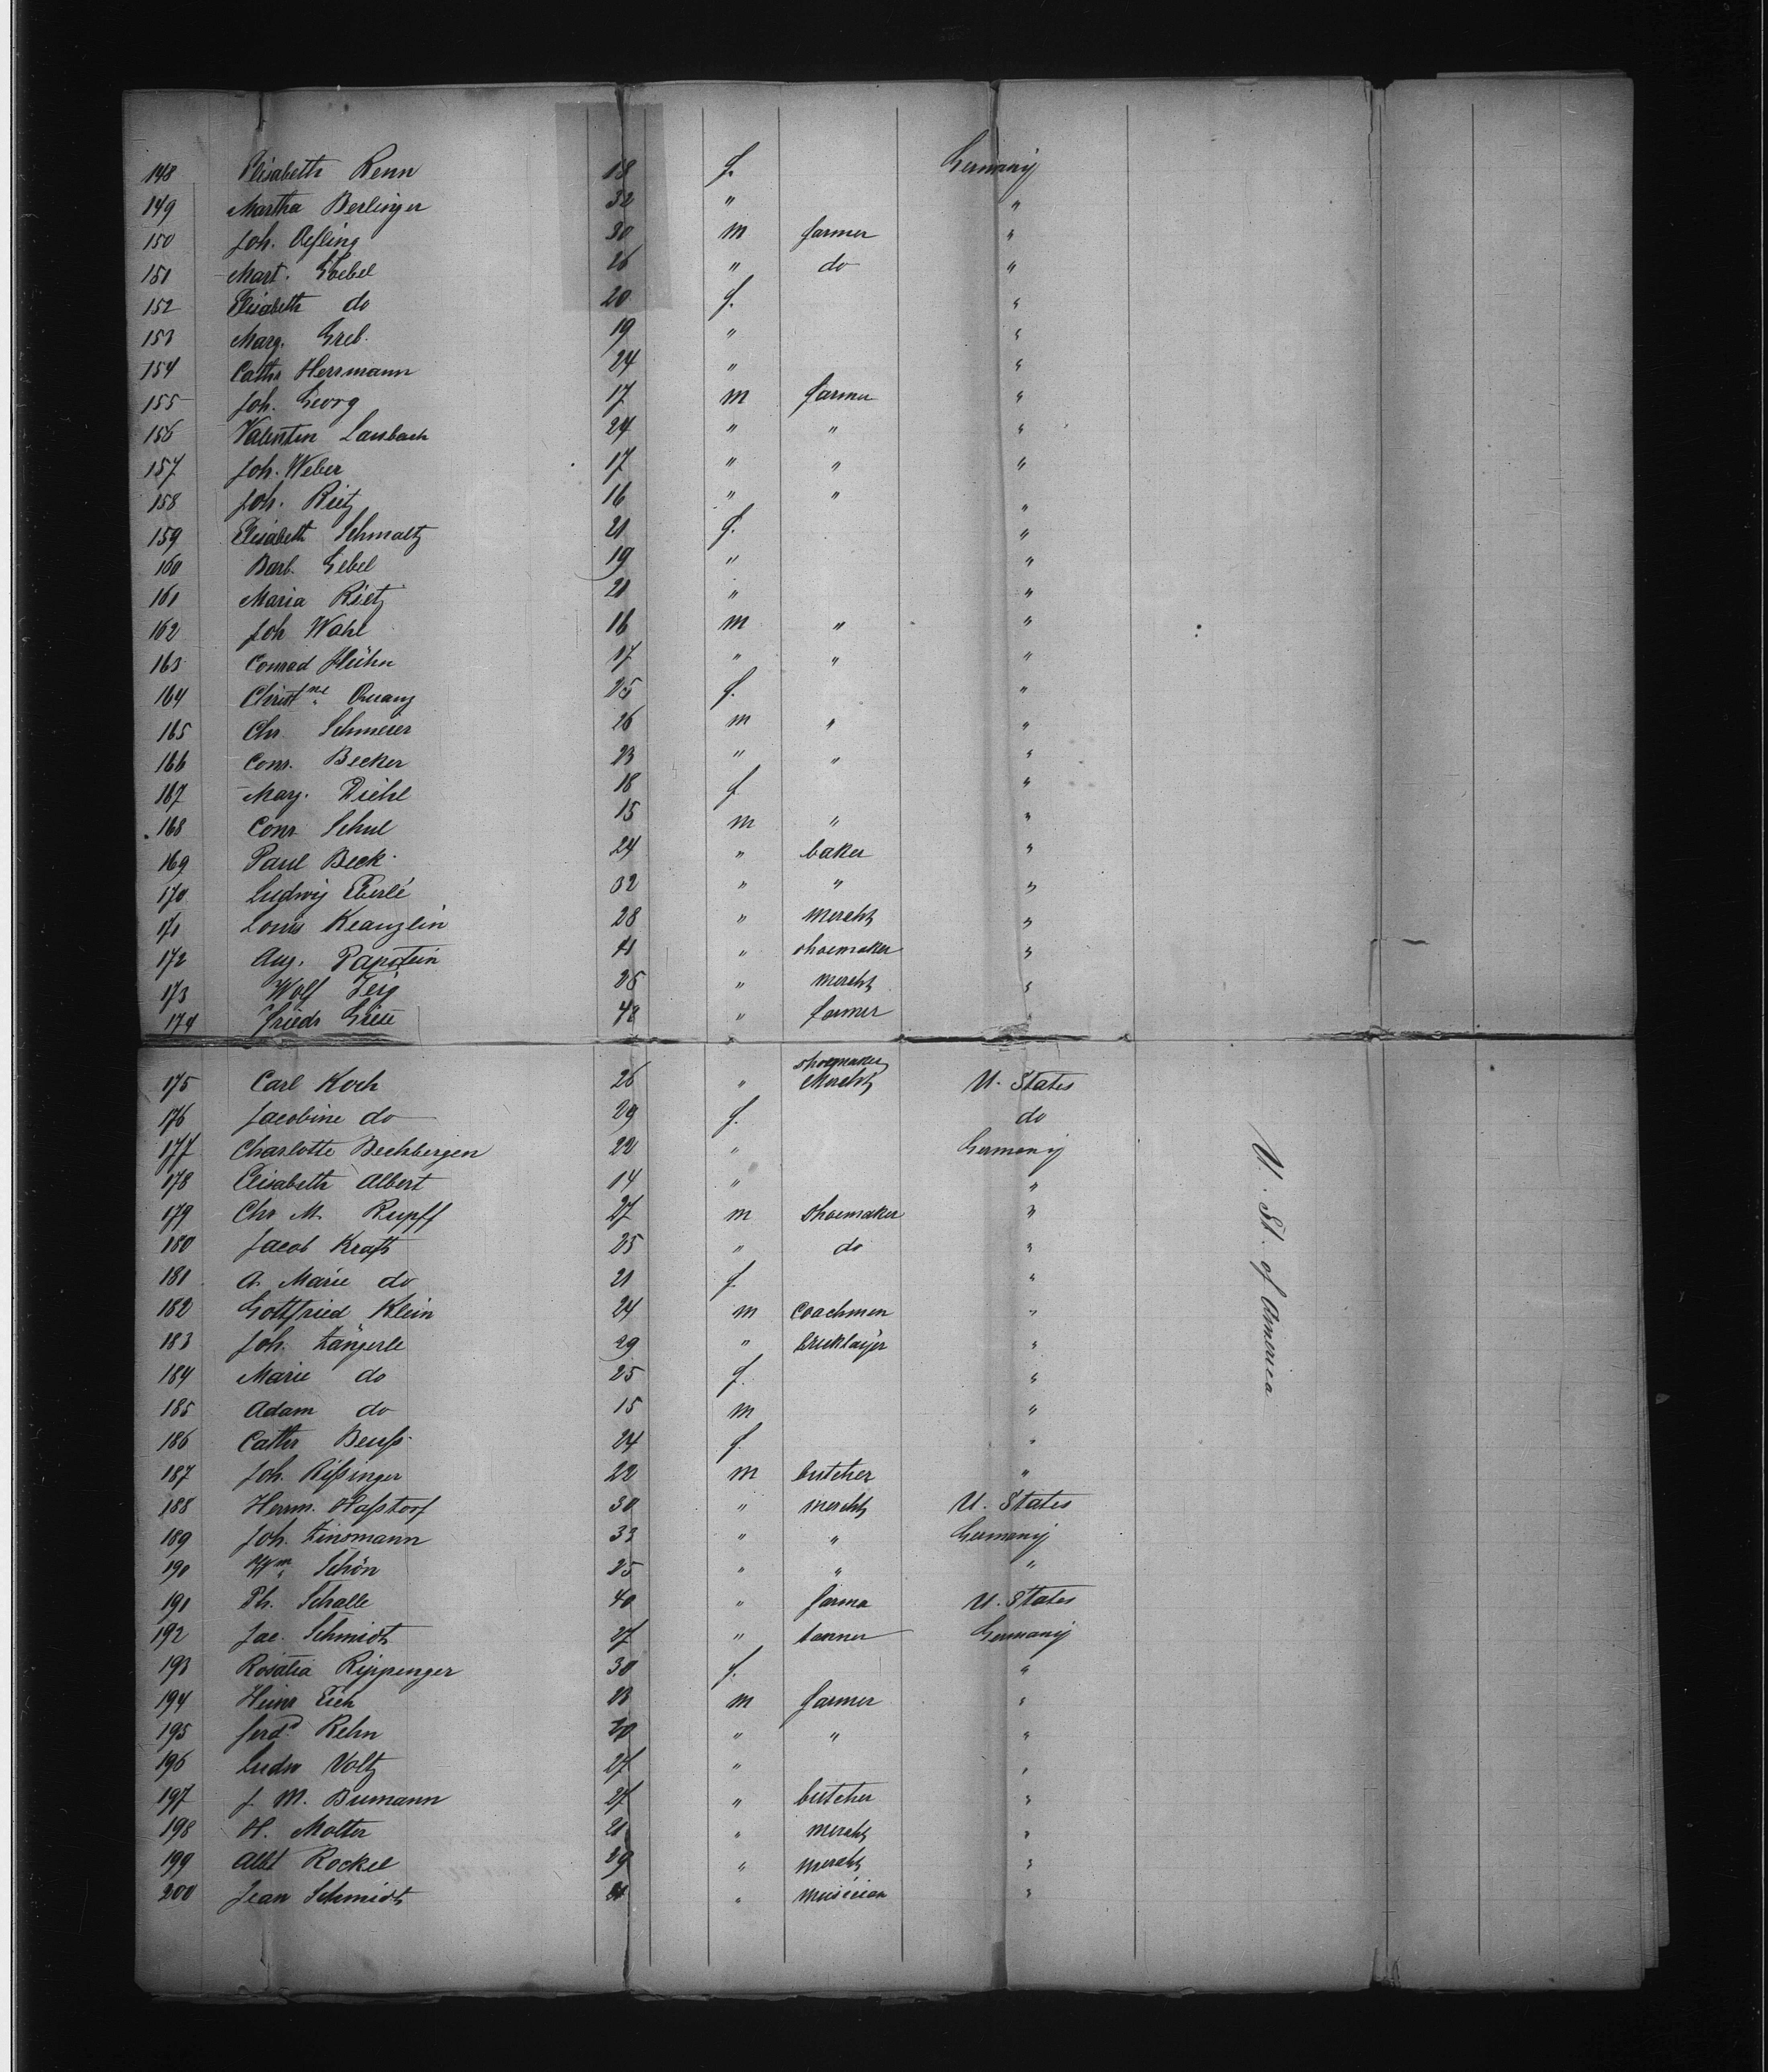 148 Elisabeth Renn 18 f. Germany
149 Martha Berlinger 32 " "
150 Joh. Oefling 30 m farmer "
151 Mart. Goebel 26 " do "
152 Elisabeth do 20 f. "
153 Marg. Greb. 19 " "
154 Cathr Herrmann 24 " "
155 Joh. Georg 17 m farmer "
156 Valentin Laubach 24 " " "
157 Joh. Weber 17 " " "
158 Joh. Rietz 16 " " "
159 Elisabeth Schmaltz 21 f. "
160 Barb. Gebel 19 " "
161 Maria Rietz 21 " "
162 Joh Wahl 16 m " "
163 Conrad Hühn 17 " " "
164 Christne Quanz 25 f. "
165 Chr. Schmeier 26 m " "
166 Conr. Becker 23 " " "
167 Marg. Diehl 18 f "
168 Conr Schul 15 m " "
169 Paul Beck. 24 " baker "
170 Ludwig Eberle 32 " " "
171 Louis Keanzlin 28 " mercht "
172 Aug. Papstein 41 " shoemaker "
173 Wolf Feig 26 " mercht "
174 Friedr 42 " farmer "
shoemaker
175 Carl Koch 26 " Mercht U. States
176 Jacobine do 29 f. do
177 Charlotte Bechbergen 22 " Germany
178 Elisabeth Albert 14 " "
179 Chr M. Rupff 27 m shoemaker "
180 Jacob Kraft 25 " do "
181 A. Marie do 21 f. "
182 Gottfried Klein 24 m Coachmen "
183 Joh. Zängerle 29 " bricklayer "
184 Marie do 25 f. "
185 Adam do 15 m "
186 Cathr Beuß. 24 f. "
187 Joh. Rißinger 22 m butcher "
188 Herm. Haßtorf 30 " mercht U. States
189 Joh. Zinsmann 33 " " Germany
190 Wm. Schön 25 " " "
191 Ph. Schalle 40 " farmer U. States
192 Jac. Schmidt 27 " tanner Germany
193 Rosalia Rippenger 30 f. "
194 Heinr Eich 23 m farmer "
195 Ferd. Rehn 20 " " "
196 Ludw Voltz 27 " "
197 J. M. Bumann 27 " butcher "
198 H. Molter 21 " mercht "
199 Albt Rockel 29 " mercht "
200 Jean Schmidt " musician "
U. St. of America